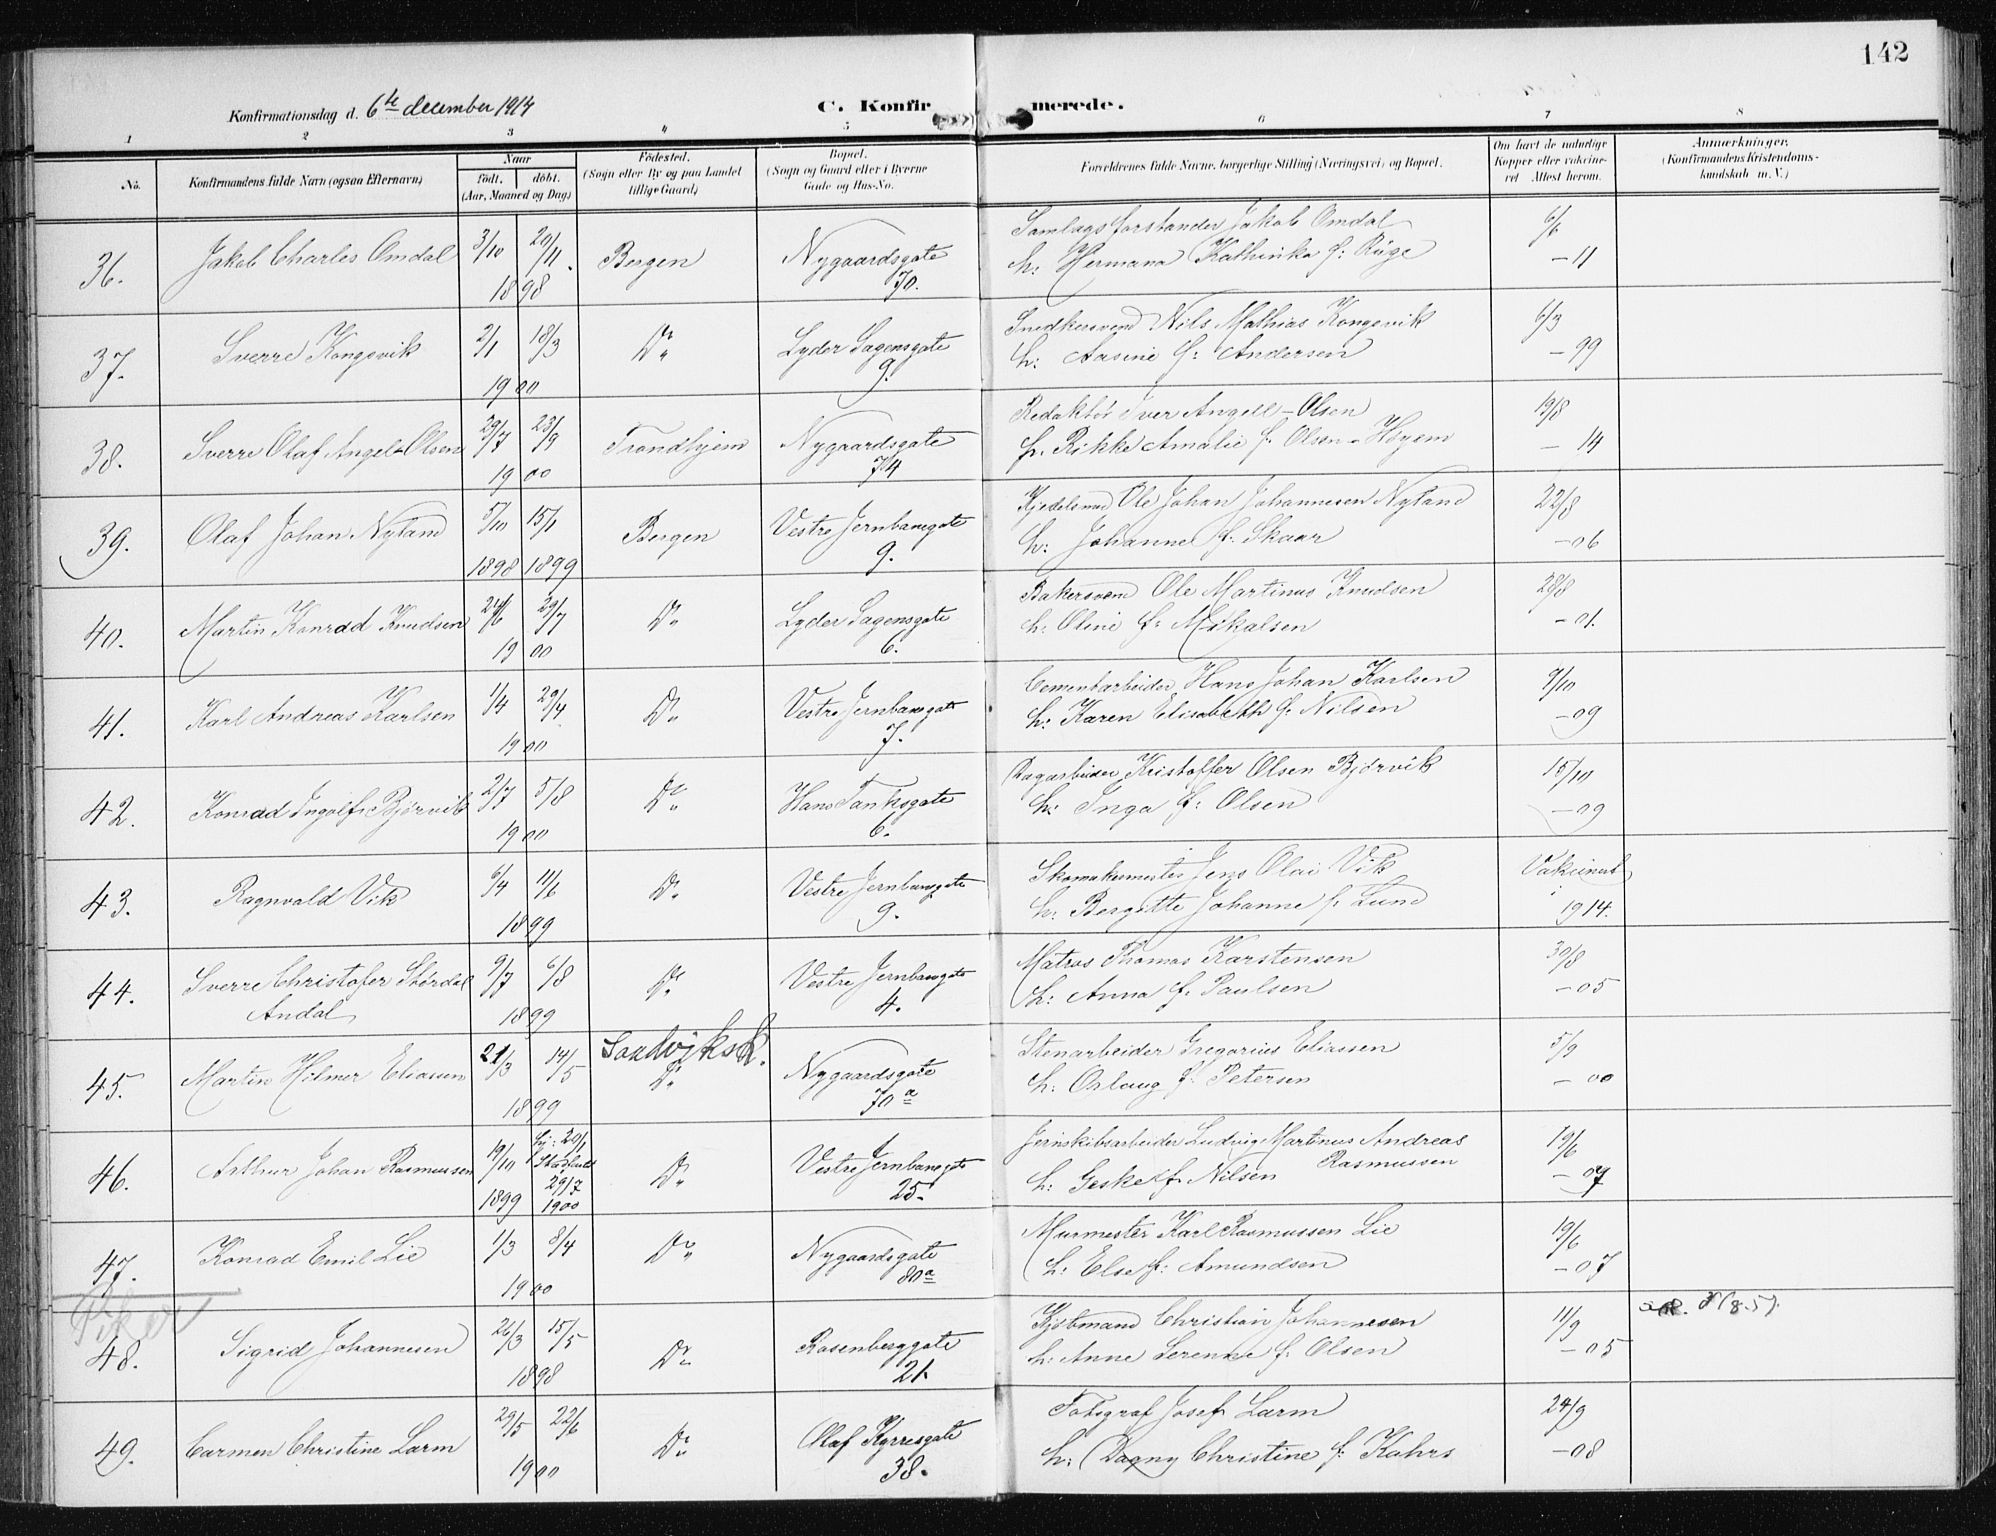 142
Konfirmationsdag d. 6te december 1914
C. Konfirmerede.
1 2 3 4 5 6 7 8
No.
Konfirmandens fulde Navn (ogsaa Efternavn)
Naar
født. døbt.
(Aar, Maaned og Dag)
Fødested.
(Sogn eller By og paa Landet
tillige Gaard)
Bopæl.
(Sogn og Gaard eller i Byerne
Gade og Hus-No.
Forældrenes fulde Navne, borgerlige Stilling (Næringsvei) og Bopæl.
Om havt de naturlige
Kopper eller vakcine-
ret Attest herom.
Anmærkninger.
(Konfirmandens Kristendoms-
kundskab m. V.)
36. Jakob Charles Omdal 3/10 20/11 1898 Bergen Nygaardsgate 70.
Samlagsforstander Jakob Omdal 6/6
h: Hermana Kathinka f: Rüge -11
37. Sverre Kongsvik 2/1 18/3 1900 Do Lyder Sagensgate 9.
Snedkersvend Nils Mathias Kongsvik 6/3
h: Aasine f: Andersen -99
38. Sverre Olaf Angell-Olsen 29/7 23/9 1900 Trondhjem Nygaardsgate 74
Redaktør Iver Angell-Olsen 19/8
h. Rikke Amalie f. Olsen-Høyem -14
39. Olaf Johan Nyland 5/10 15/1 1898 1899 Bergen Vestre Jernbanegate 9.
Kjedelsmed Ole Johan Johannesen Nyland 22/8
h: Johanne f: Skaar -06
40. Martin Konrad Knudsen 24/6 29/7 1900 Do Lyder Sagensgate 6.
Bakersvend Ole Martinus Knudsen 28/8
h: Oline f: Mikalsen -01.
41. Karl Andreas Karlsen 1/4 29/4 1900 Do Vestre Jernbanegate 7.
Cementarbeider Hans Johan Karlsen 9/10
h: Karen Elisabeth f: Nilsen -09
42. Konrad Ingolf Bjørvik 2/7 5/8 1900 Do Hans Tanksgate 6.
Dagarbeider Kristoffer Olsen Bjørvik 15/10
h: Inga f: Olsen -09
43. Ragnvald Vik 6/4 11/6 1899 Do Vestre Jernbanegate 9.
Skomakermester Jens Olai Vik Vaksinert
h: Bergitte Johanne f: Lund i 1914.
44. Sverre Christofer Stördal 9/7 6/8 1899 Do Vestre Jernbanegate 4.
Andal
Matros Thomas Karstensen 30/8
h: Anna f: Paulsen -05
45. Martin Hilmer Eliassen 21/3 14/5 1899 Sandviksk. Do Nygaardsgate 70a
Stenarbeider Gregorius Eliassen 5/9
h: Oslaug f: Petersen -00
46. Arthur Johan Rasmussen 19/10 1899 hj: 20/1 29/7 1900 Do Vestre Jernbanegate 25.
Jernskibsarbeider Ludvig Martinus Andreas Rasmussen 19/6
h: Geske f: Nilsen -07
47. Konrad Emil Lie 1/3 8/4 1900 Do Nygaardsgate 80a
Murmester Karl Rasmussen Lie 19/6
h: Else f: Amundsen -07
Piker
48. Sigrid Johannesen 26/3 15/5 1898 Do Rosenberggate 21.
Kjøbmand Christian Johannesen 11/9
h: Anne Serenne f: Olsen -05
49. Carmen Christine Larm 29/5 22/6 1900 Do Olaf Kyrresgate 38.
Fotograf Josef Larm 24/9
h: Dagny Christine f: Kahrs -08